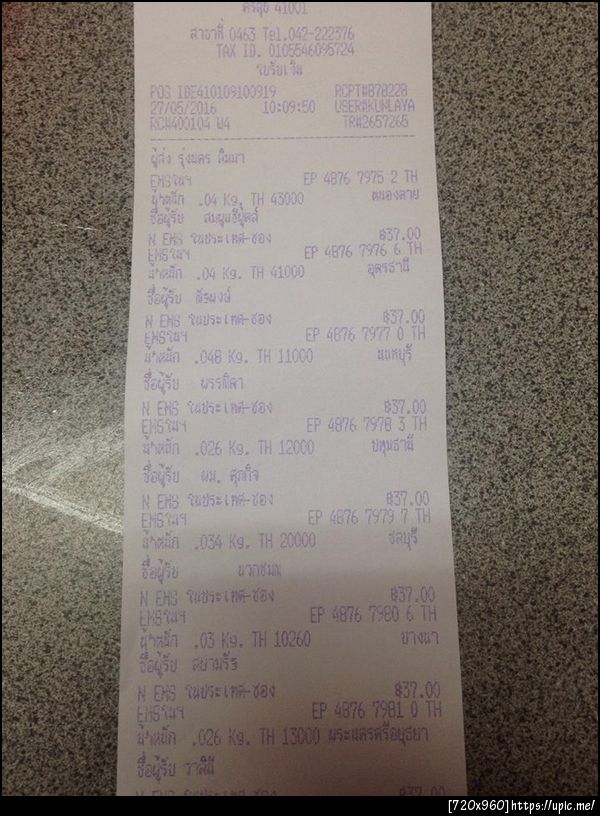 ศรีสุข 41001
สาขาที่ 0463 Tel.042-222376
TAX ID. 0105546095724
ใบรับเงิน
POS IDE410109100919 RCPT#878228
27/05/2016 10:09:50 USER#KUNLAYA
RC#400104 W4 TR#2657265
ผู้ส่ง รุ่งนคร สิมมา
EMSในฯ EP 4876 7975 2 TH
น้ำหนัก .04 Kg. TH 43000 หนองคาย
ชื่อผู้รับ
N EMS ในประเทศ-ซอง ฿37.00
EMSในฯ EP 4876 7976 6 TH
น้ำหนัก .04 Kg. TH 41000 อุดรธานี
ชื่อผู้รับ
N EMS ในประเทศ-ซอง ฿37.00
EMSในฯ EP 4876 7977 0 TH
น้ำหนัก .048 Kg. TH 11000 นนทบุรี
ชื่อผู้รับ พรรทิดา
N EMS ในประเทศ-ซอง ฿37.00
EMSในฯ EP 4876 7978 3 TH
น้ำหนัก .026 Kg. TH 12000 ปทุมธานี
ชื่อผู้รับ ผม. ศุภกิจ
N EMS ในประเทศ-ซอง ฿37.00
EMSในฯ EP 4876 7979 7 TH
น้ำหนัก .034 Kg. TH 20000 ชลบุรี
ชื่อผู้รับ
N EMS ในประเทศ-ซอง ฿37.00
EMSในฯ EP 4876 7980 6 TH
น้ำหนัก .03 Kg. TH 10260 บางนา
ชื่อผู้รับ สยามรัฐ
N EMS ในประเทศ-ซอง ฿37.00
EMSในฯ EP 4876 7981 0 TH
น้ำหนัก .026 Kg. TH 13000 พระนครศรีอยุธยา
ชื่อผู้รับ วาสินี
N EMS ในประเทศ-ซอง ฿37.00
[720x960]https://upic.me/